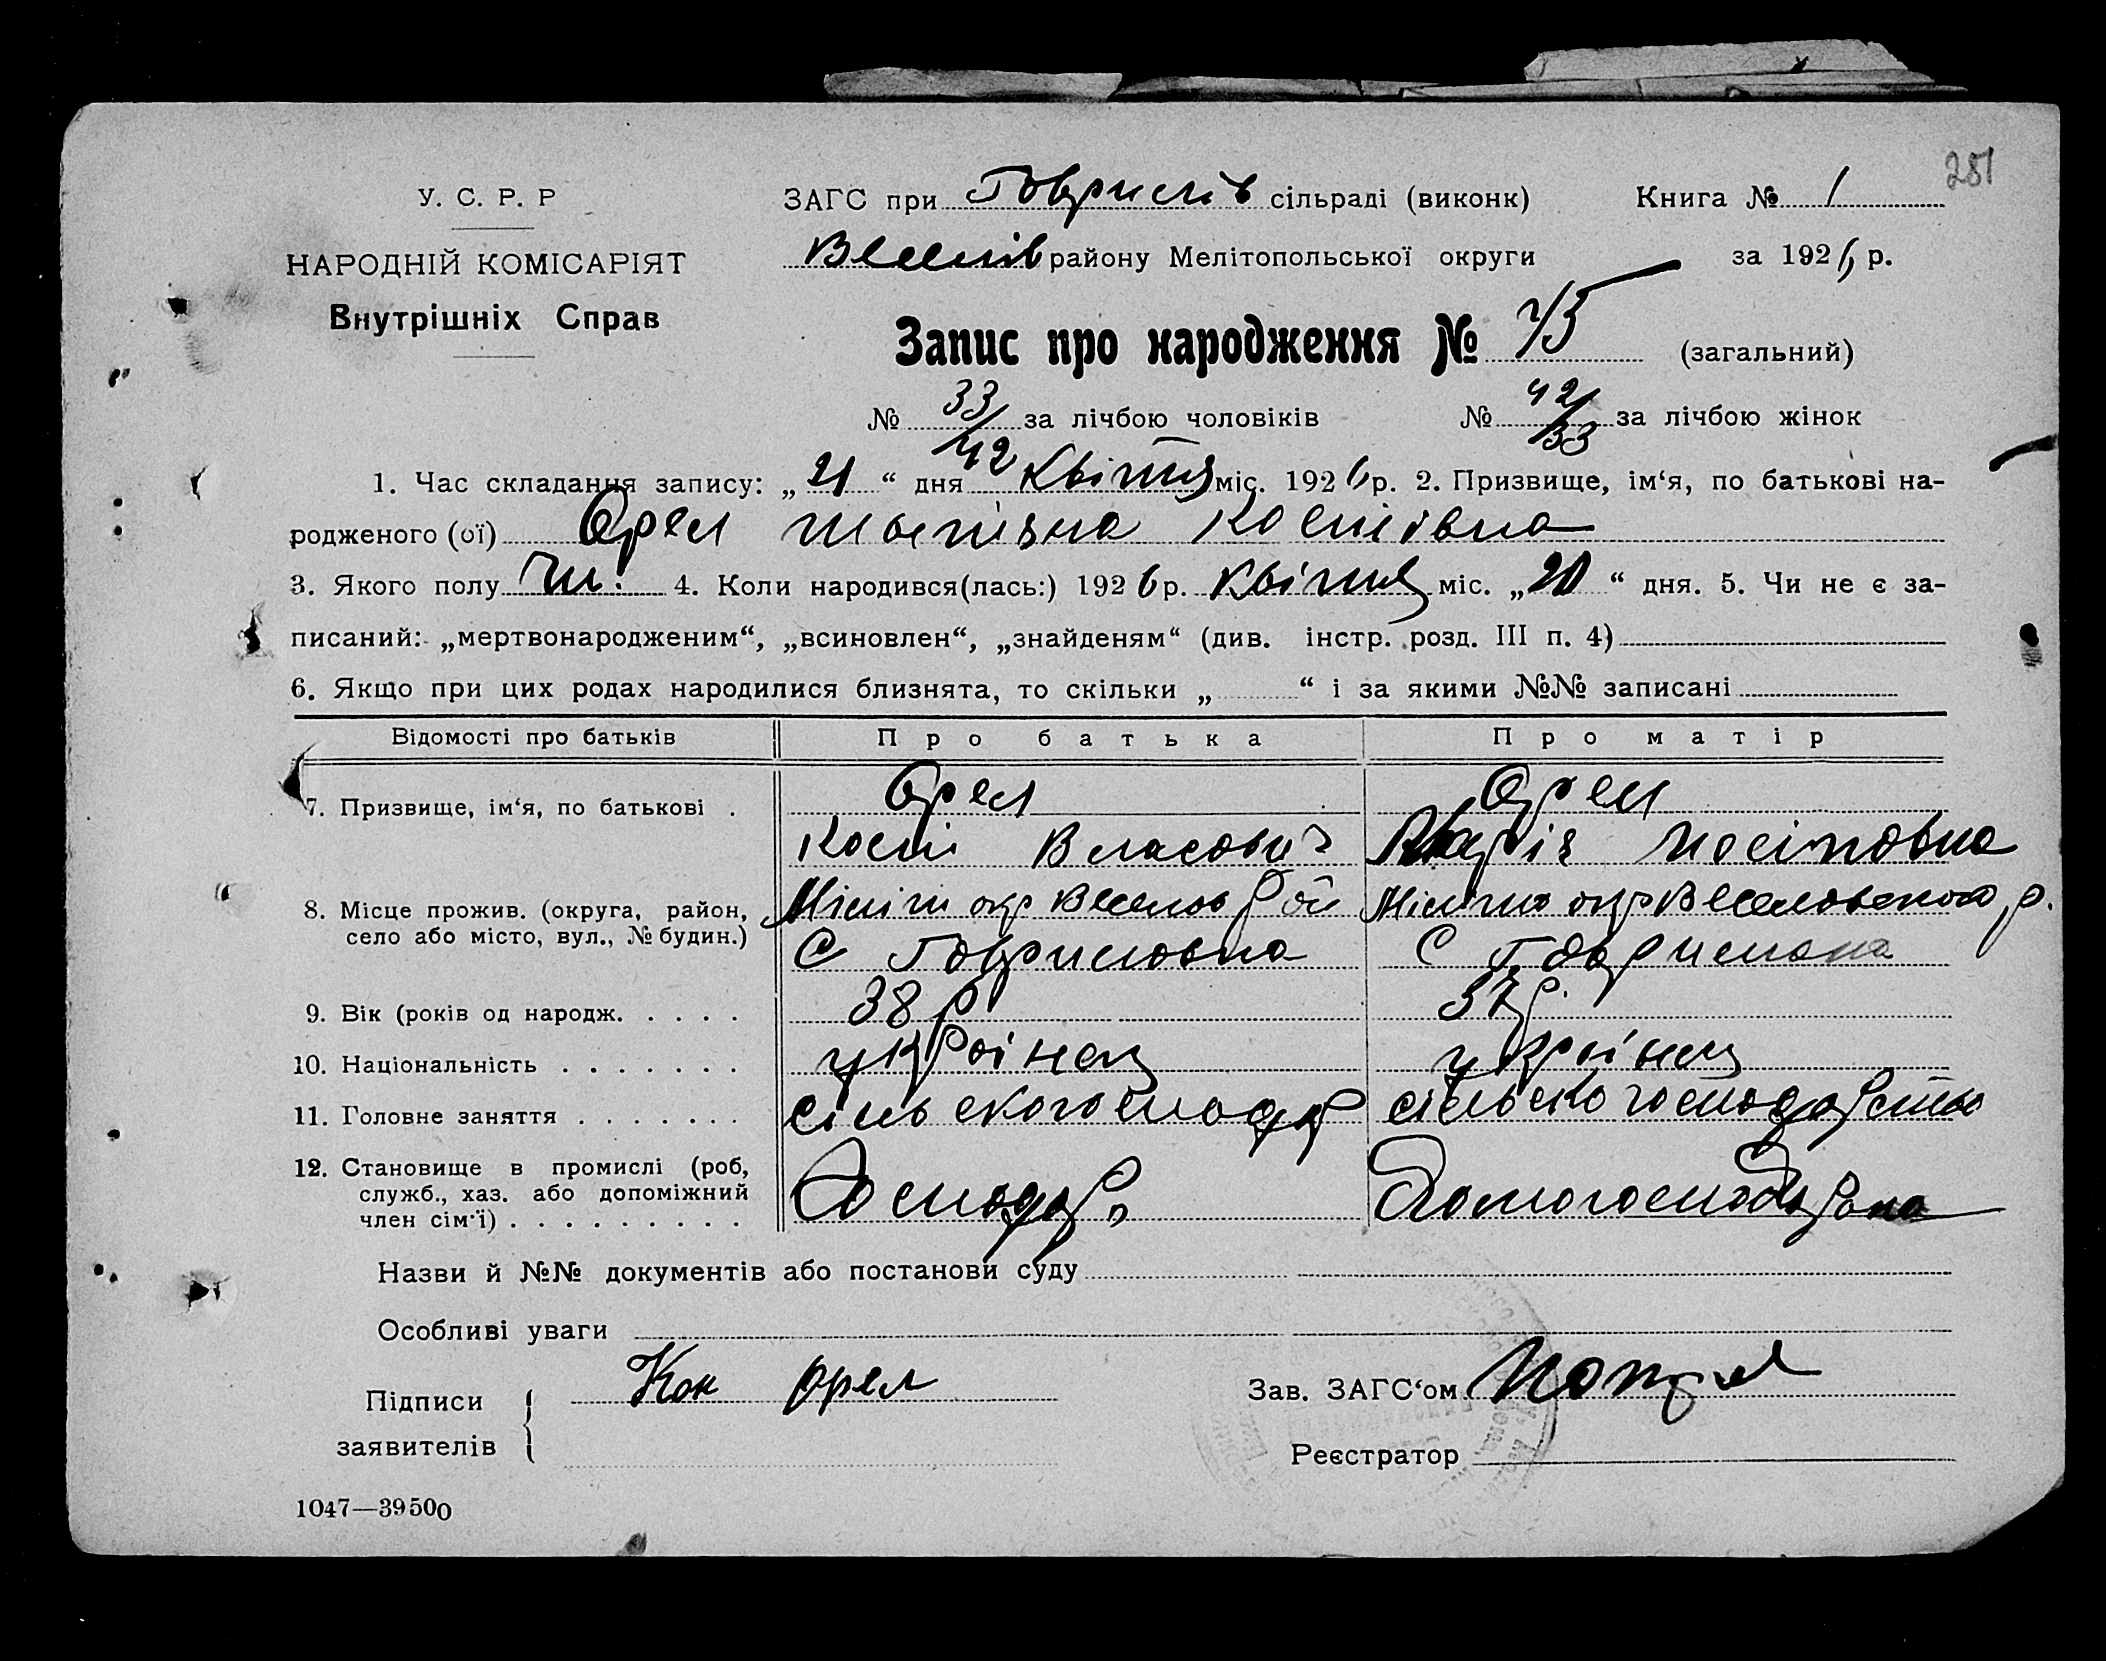 281
У. С. Р. Р
НАРОДНІЙ КОМІСАРІЯТ
Внутрішніх Справ
ЗАГС при Гаврилів сільраді (виконк) Книга № 1
Веселів району Мелітопольської округи за 1926 р.
Запис про народження № 75 (загальний)
№ 33/42 за лічбою чоловіків № 42/33 за лічбою жінок
1. Час складання запису: „21“ дня Квітня міс. 1926 р. 2. Призвище, ім‘я, по батькові на-
родженого (ої) Орел Костівна
3. Якого полу 4. Коли народився(лась:) 1926 р. Квітня міс. „20“ дня. 5. Чи не є за-
писаний: „мертвонародженим“, „всиновлен“, „знайденям“ (див. інстр. розд. III п. 4)
6. Якщо при цих родах народилися близнята, то скільки „ “ і за якими №№ записані
Відомості про батьків Про батька Про матір
7. Призвище, ім‘я, по батькові . Орел Орел
Кості Власович Марія Йосіповна
8. Місце прожив. (округа, район,Міліт окр Веселов окр Веселовского р.
село або місто, вул., № будин.) С Гавриловка С
9. Вік (років од народж. . . . . 38 р 37 р.
10. Національність . . . . . . . українец українец
11. Головне заняття . . . . . . . сільскогосподар сільскогосподарство
12. Становище в промислі (роб,
служб., хаз. або допоміжний Господар Домогосподарка
член сім‘ї) . . . . . . . . .
Назви й №№ документів або постанови суду
Особливі уваги
Підписи Кон Орел Зав. ЗАГС‘ом
заявителів Реєстратор
1047—39500